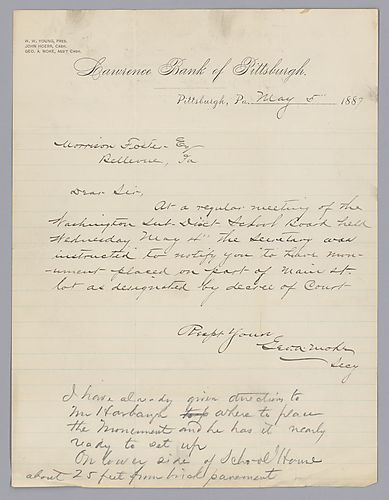 W. W. YOUNG, PRES.
JOHN HOERR, CASH.
GEO. A. MOKE, ASS'T CASH.
Lawrence Bank of Pittsburgh.
Pittsburgh, Pa. May 5" 1887
Morrison Foster Esq
Bellevue, Pa
Dear Sir,
At a regular meeting of the
Washington Sub-Dist School Board held
Wednesday May 4" the Secretary was
instructed to notify you to have mon-
ument placed on part of Main St
lot as designated by decree of Court
Respt Yours
Geo A Moke
Secy
I have already given directions to
Mr Harbaugh where to place
the Monument and he has it nearly
ready to set up
On lower side of School House
about 25 feet from brick pavement